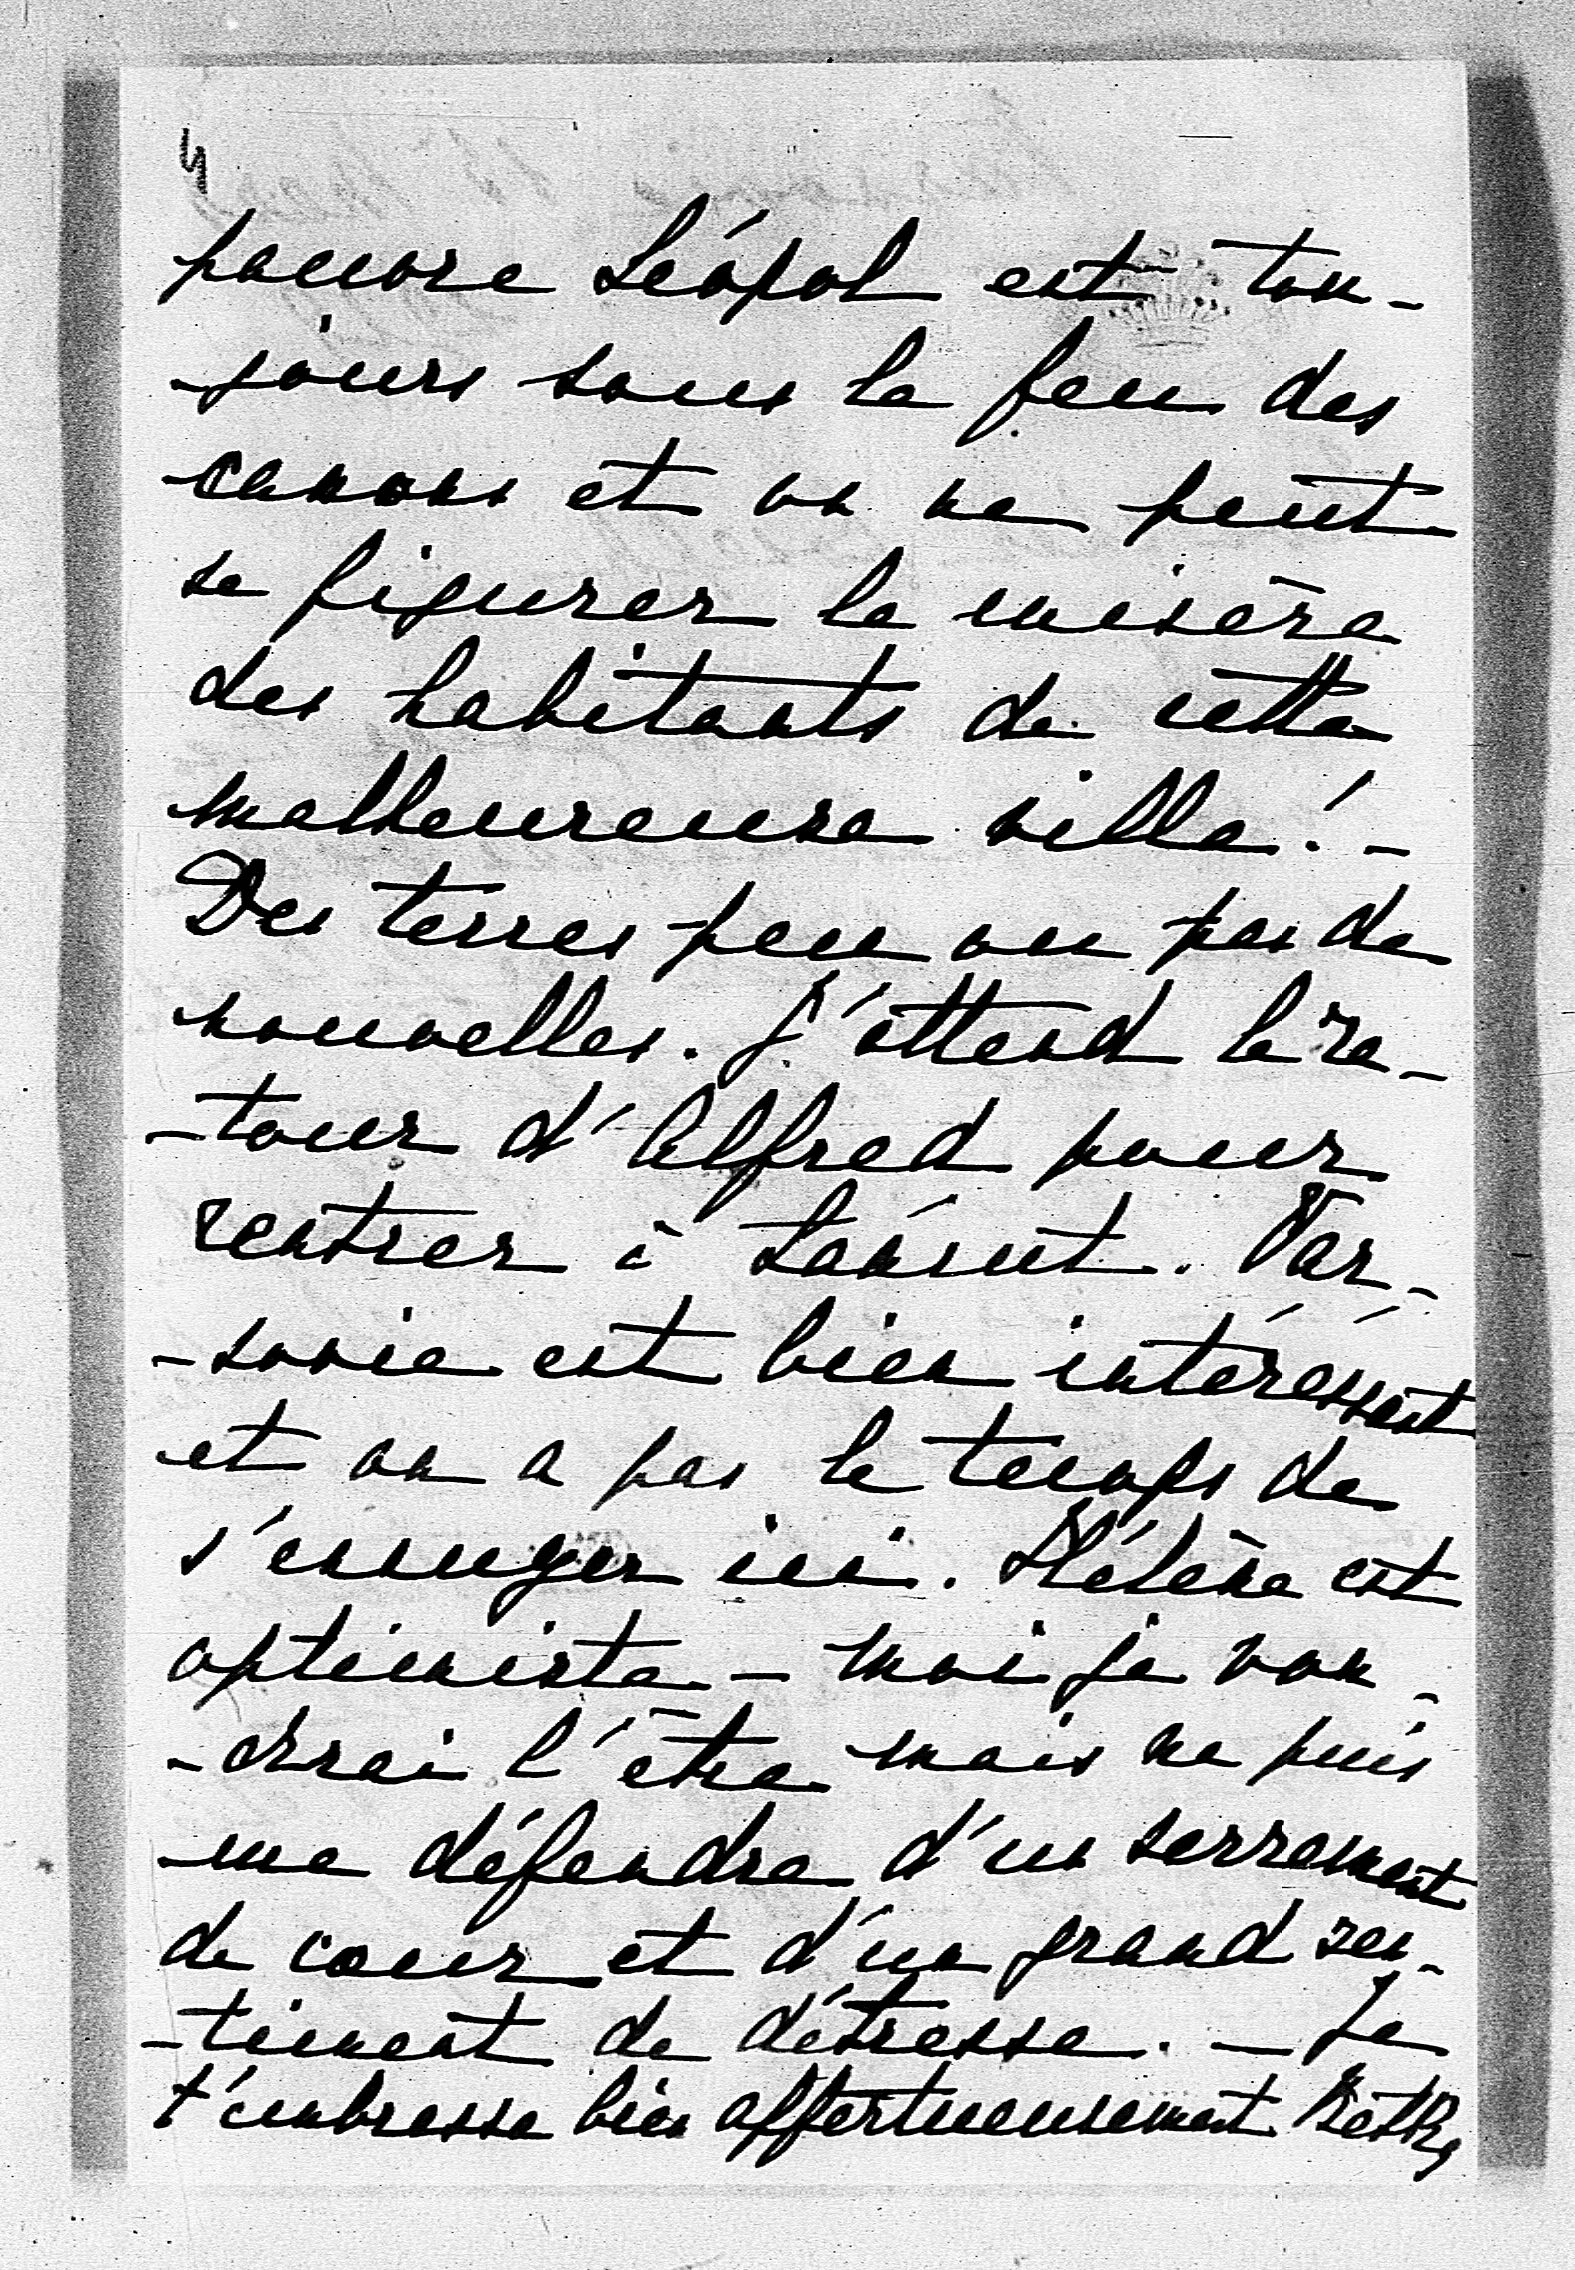 4
pauvre Léopol est tou-
-jours sous le feu des
canons et on ne peut
se figurer la misère
des habitants de cette
malheureuse ville! -
Des terres peu ou pas de
nouvelles. J'attend le re-
-tour d'Alfred pour
rentrer à Łańcut. Var-
-sovie est bien intéressant
et on a pas le temps de
s'ennuyer ici. Hélène est
optimiste - moi je vou-
-drai l'être mais ne puis
me défendre d'un serrement
de coeur et d'un grand sen-
-timent de détresse. - Je
t'embrasse bien affectueusement